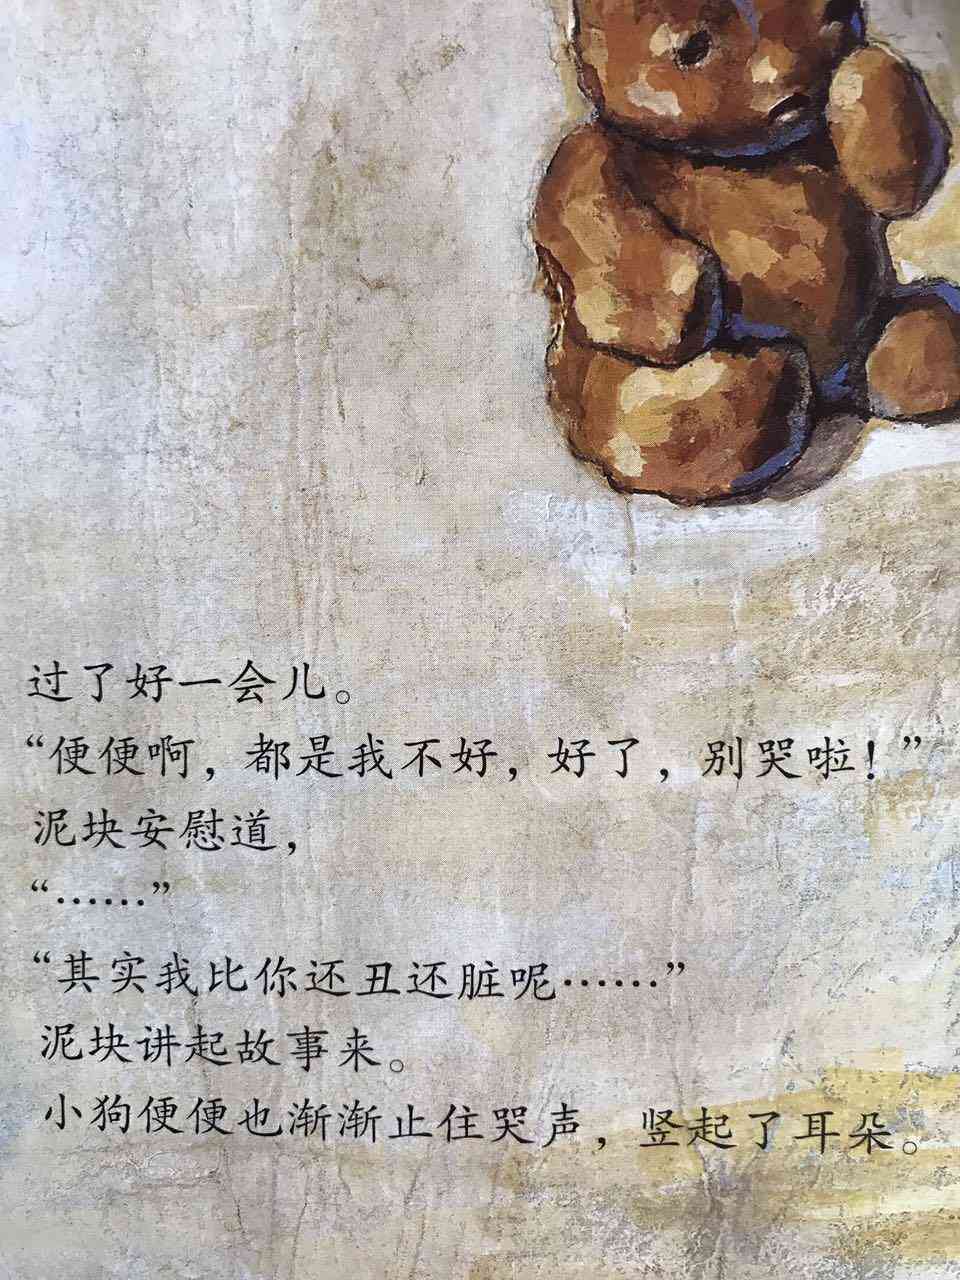 过了好一会儿。
“便便啊，都是我不好，好了，别哭啦！”
泥块安慰道，
“……”
“其实我比你还丑还脏呢……”
泥块讲起故事来。
小狗便便也渐渐止住哭声，竖起了耳朵。